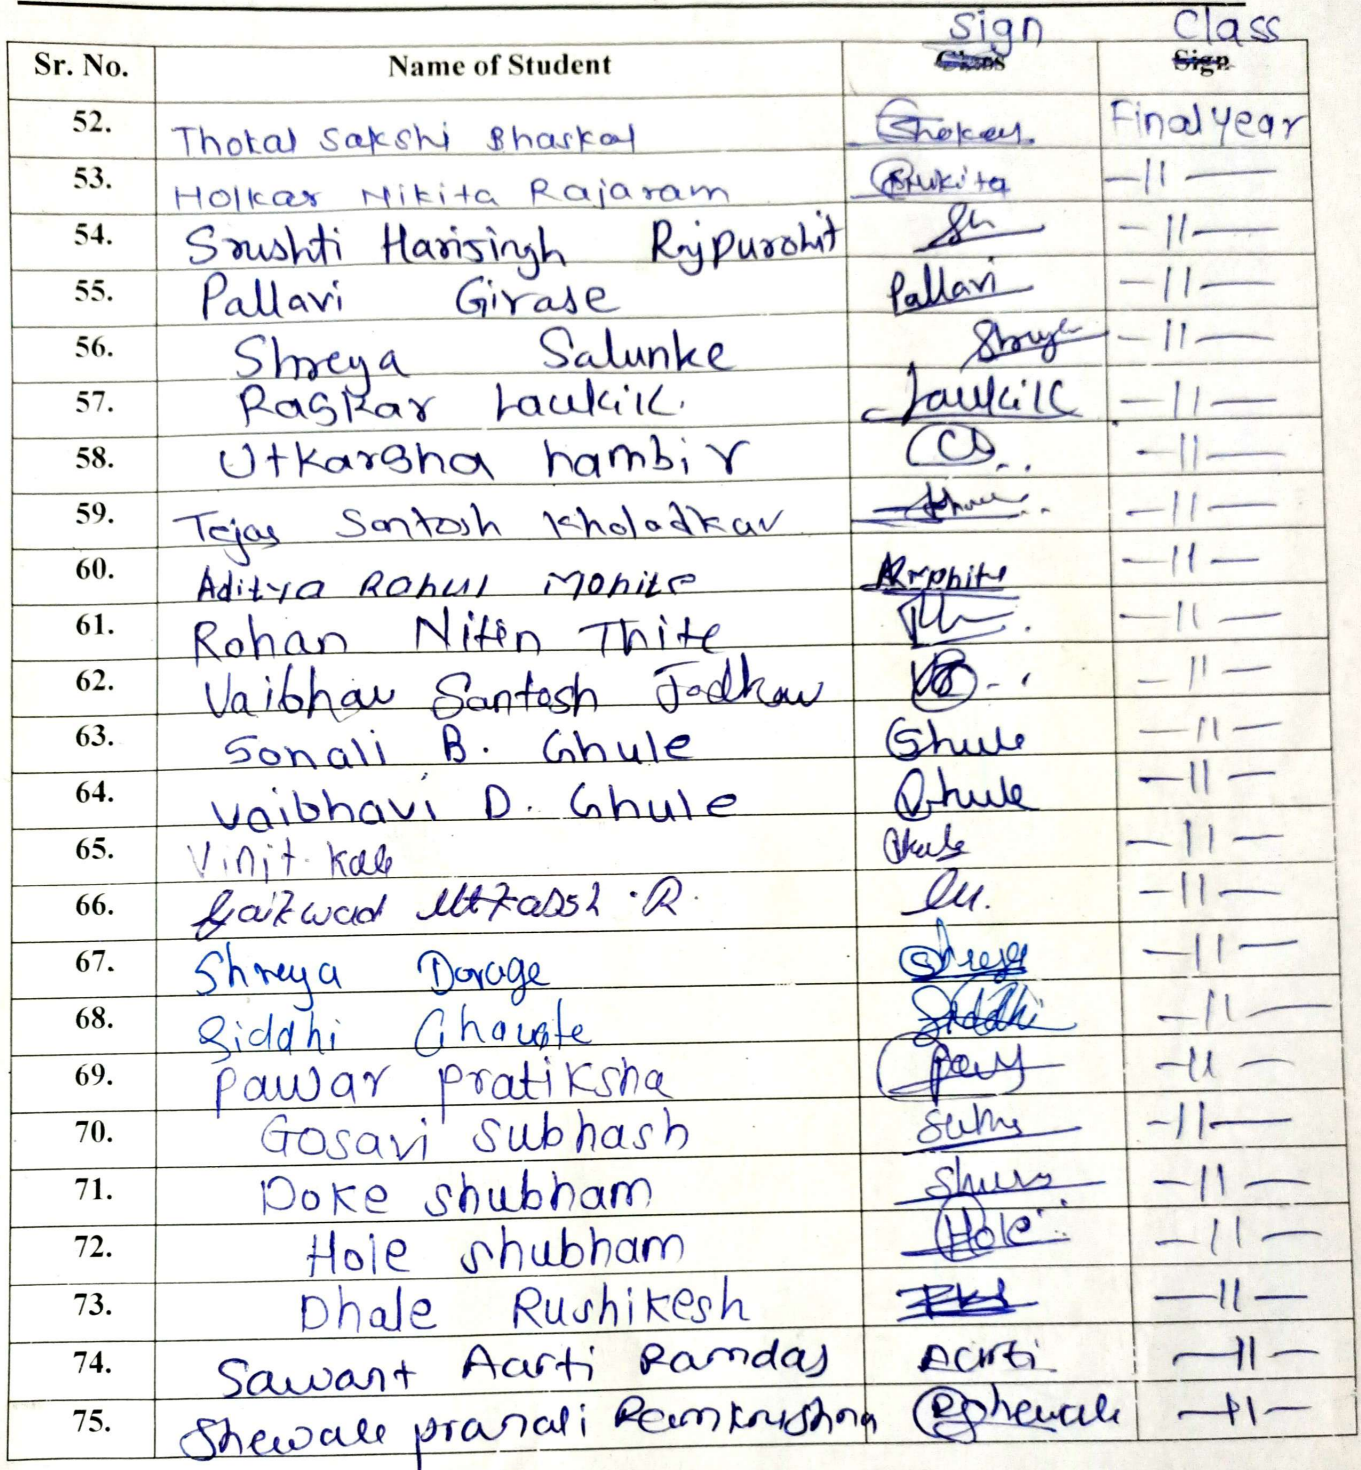 Sign Class
Sr. No. Name of Student Class Sign
52. Thokal Sakshi Bhaskal Final year
53. Holkar Nikita Rajaram Nikita -11-
54. Srushti Harisingh Rajpurohit -11-
55. Pallavi Girase Pallavi -11-
56. Shreya Salunke Shreya -11-
57. Raskar Laukik. Laukik -11-
58. Utkarsha hambir -11-
59. Tejas Santosh Kholadkar -11-
60. Aditya Rahul Mohite -11-
61. Rohan Nitin Thite -11-
62. Vaibhav Santosh Jadhav -11-
63. Sonali B. Ghule Ghule -11-
64. Vaibhavi D. Ghule Ghule -11-
65. Vinit Kale -11-
66. Gaikwad Utkarsh .R. -11-
67. Shreya Dorage Shreya -11-
68. Siddhi Ghavate Siddhi -11-
69. Pawar Pratiksha -11-
70. Gosavi Subhash -11-
71. Doke Shubham -11-
72. Hole Shubham Hole -11-
73. Dhale Rushikesh -11-
74. Sawant Aarti Ramdas Aarti -11-
75. Shewale pranali Ramkrishna Pshewale -11-